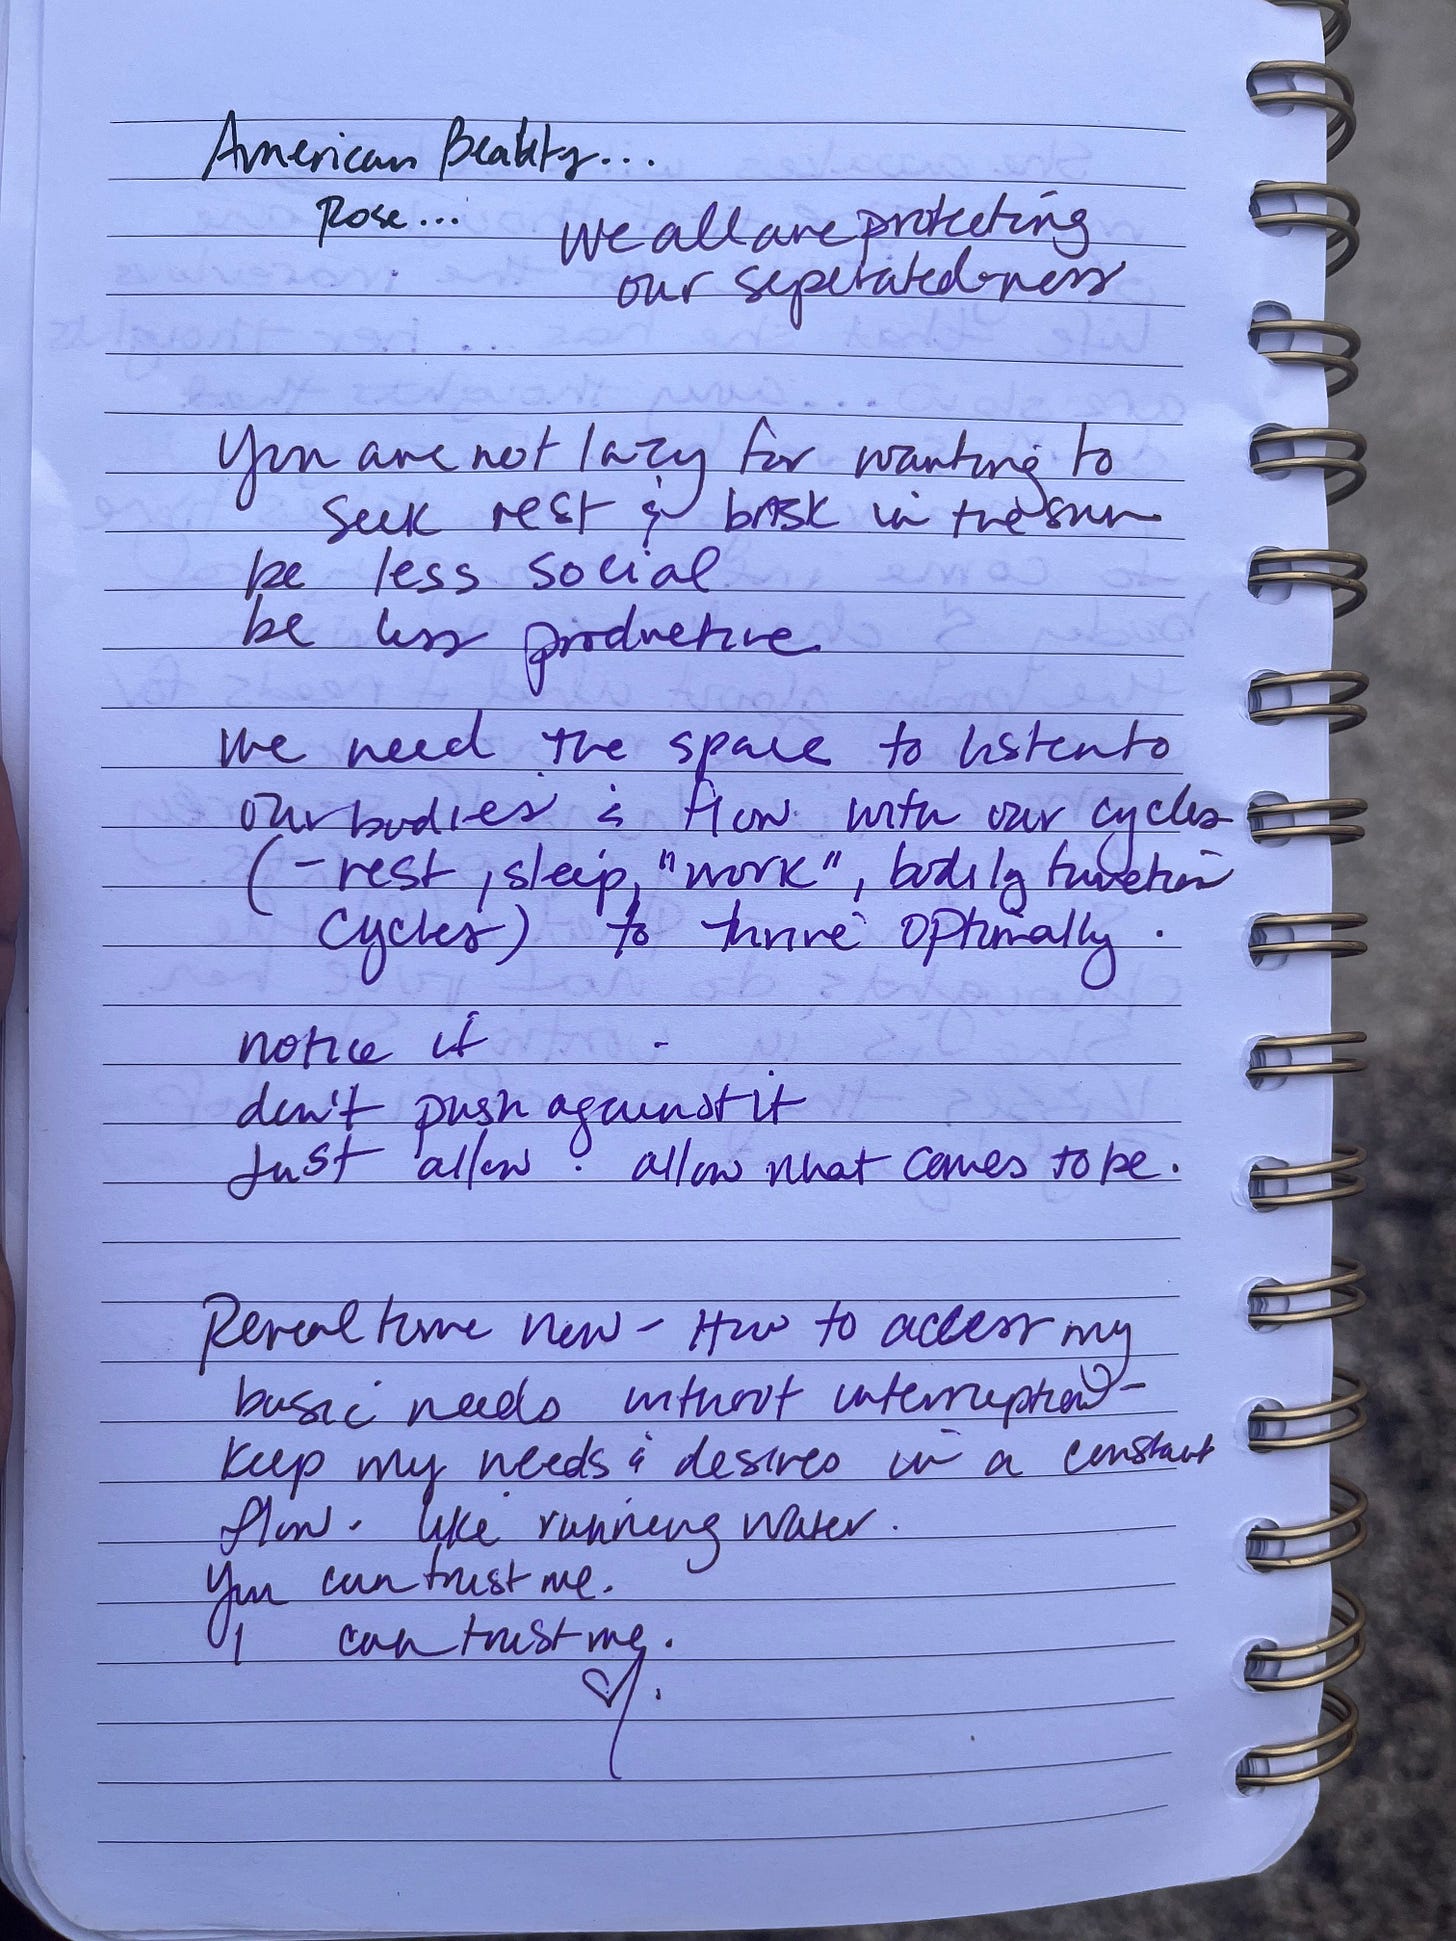 American Beauty...
Rose...
we all are protecting
our seperatedness
You are not lazy for wanting to
seek rest & bask in the sun
be less social
be less productive.
We need the space to listen to
our bodies & flow with our cycles
(- rest, sleep, "work", bodily function
cycles) to thrive optimally.
notice it
don't push against it
Just allow. allow what comes to be.
Reveal to me now - How to access my
basic needs without interruption -
keep my needs & desires in a constant
flow. like running water.
You can trust me.
I can trust me.